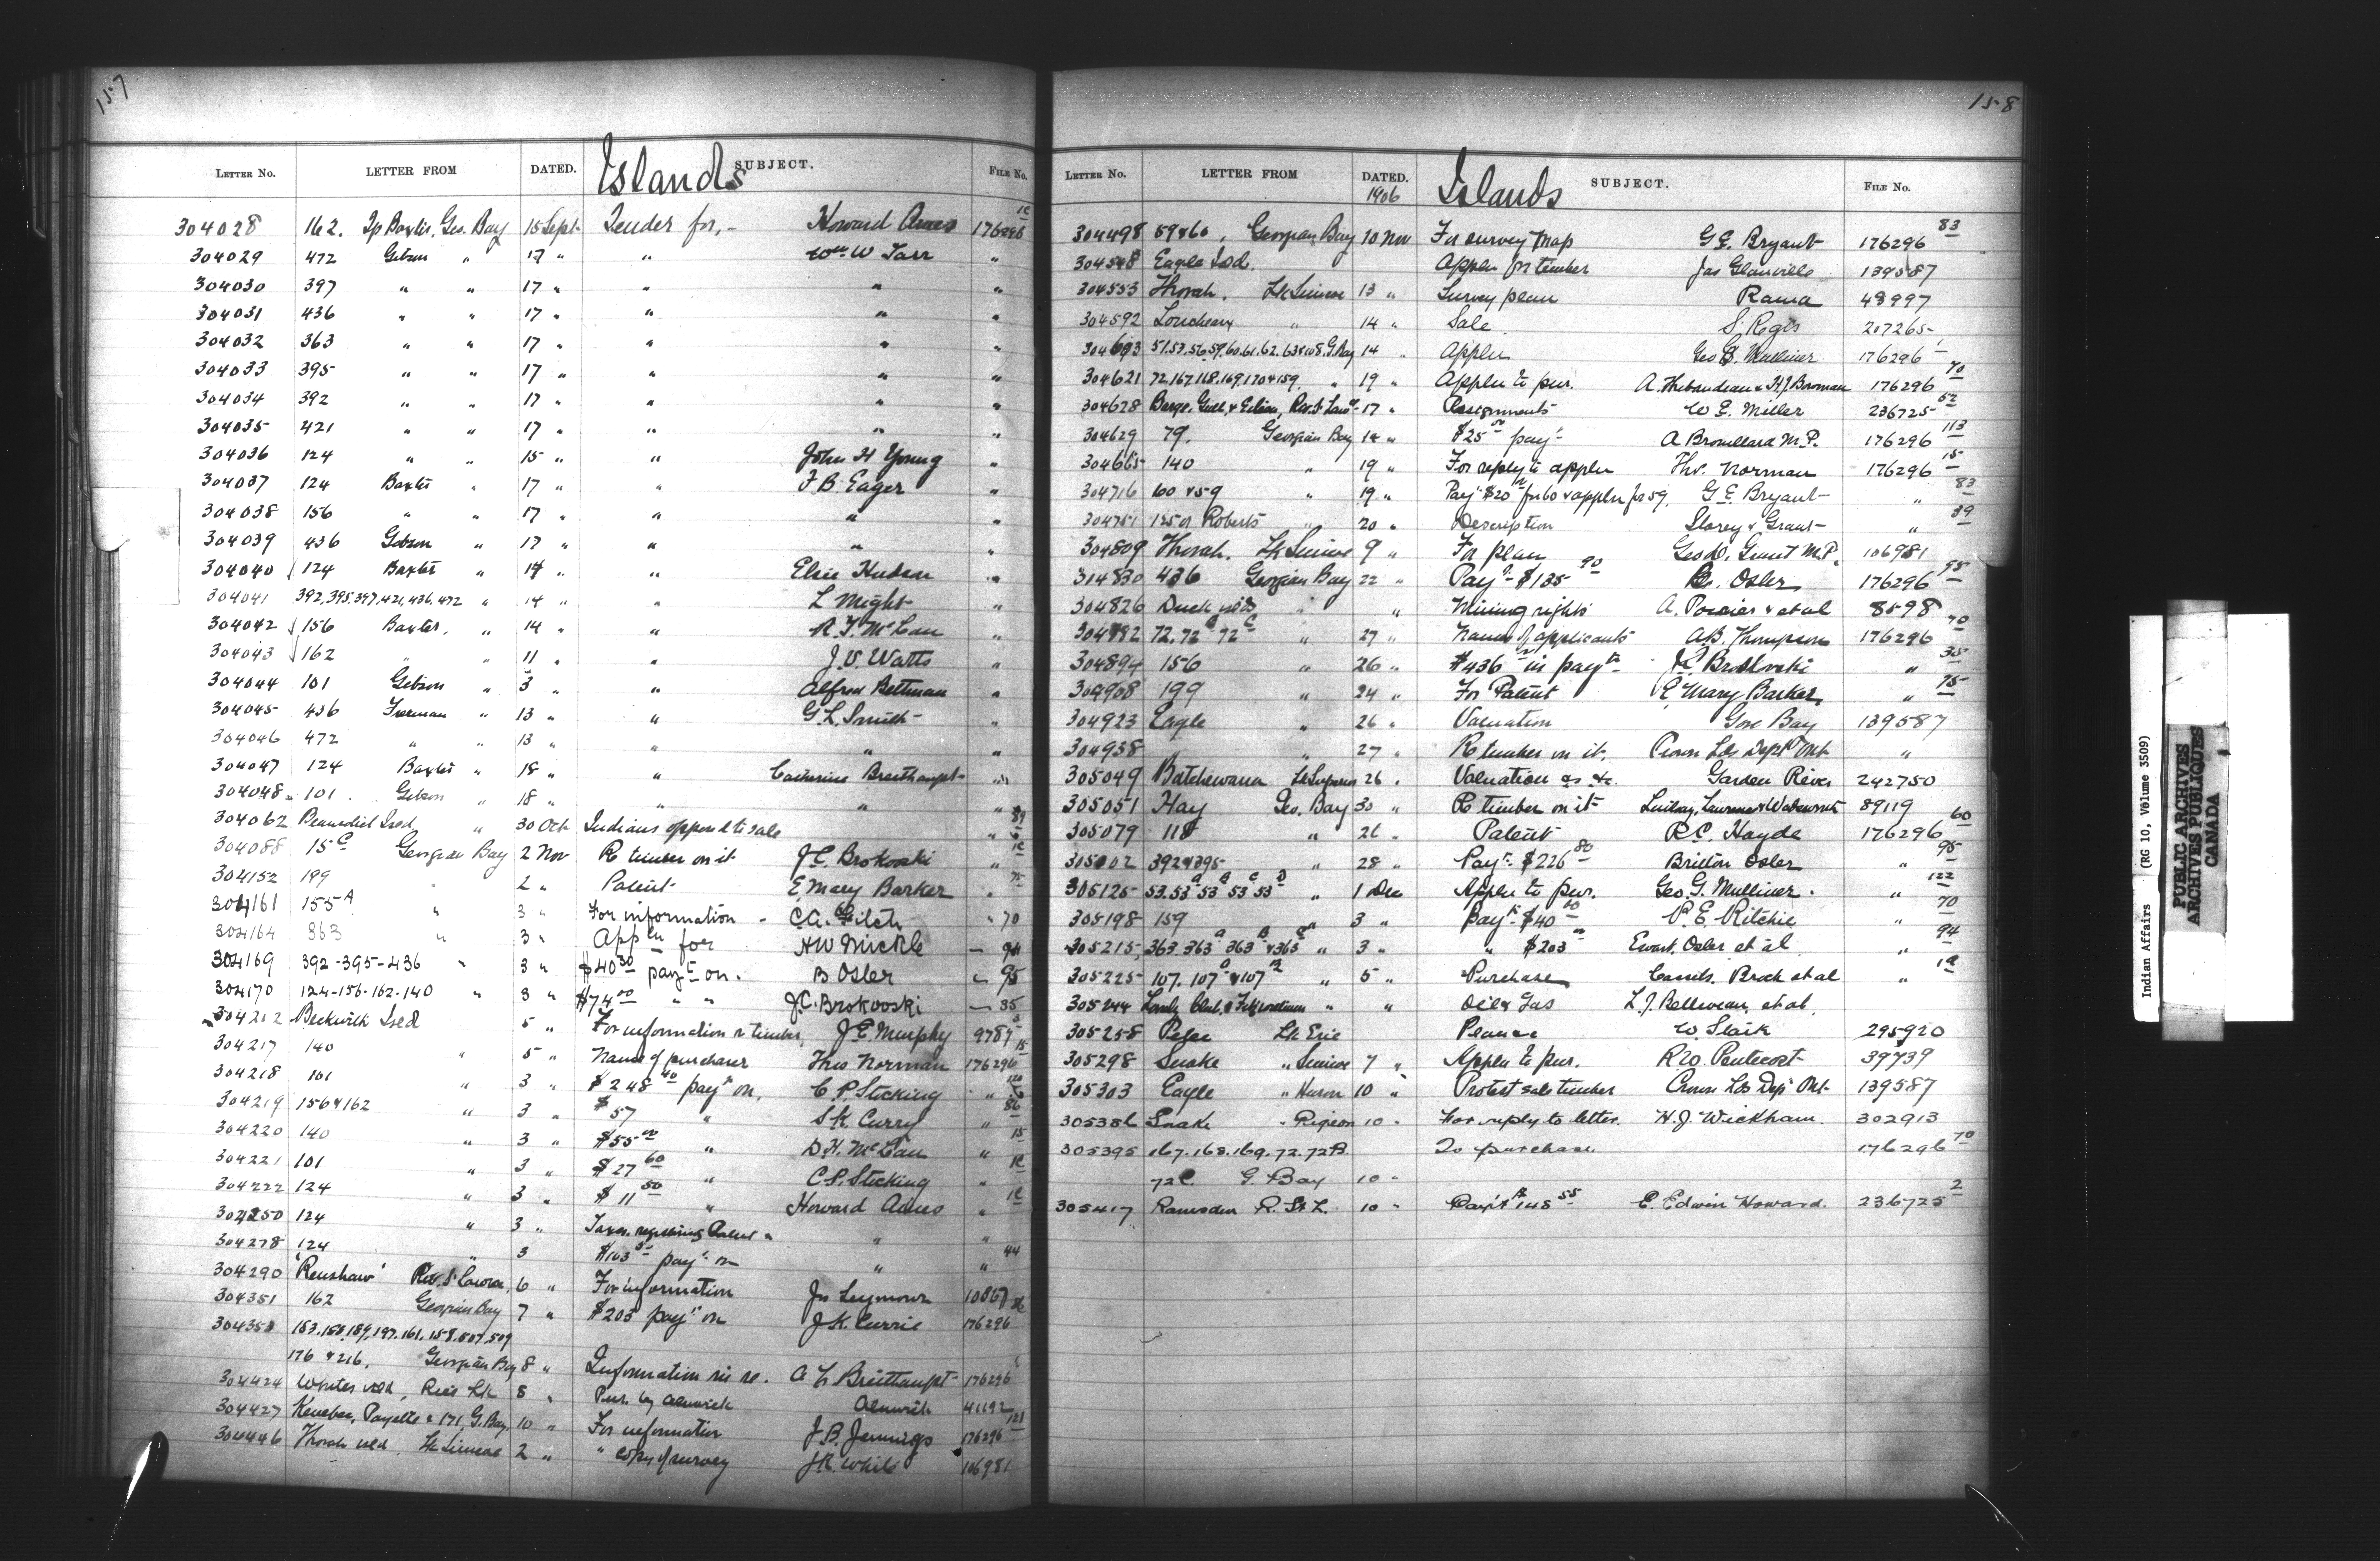 157
LETTER No. LETTER FROM DATED. Islands SUBJECT. FILE No.
304028 162. Tp Baxter, Geo. Bay 15 Sept. Tender for, - Howard Ames 176296 1c
304029 472 Gibson " 17 " " Wm W Tarr "
304030 397 " " 17 " " " "
304031 436 " " 17 " " " "
304032 363 " " 17 " " " "
304033 395 " " 17 " " " "
304034 392 " " 17 " " " "
304035 421 " " 17 " " " "
304036 124 " " 15 " " John H Young "
304037 124 Baxter " 17 " " F. B. Eager "
304038 156 " " 17 " " " "
304039 436 Gibson " 17 " " " "
304040 124 Baxter " 14 " " Elsie Hudson "
304041 392, 395, 397, 421, 436, 472 " 14 " " L Might "
304042 156 Baxter, " 14 " " "
304043 162 " " 11 " " J. V. Watts "
304044 101 Gibson " 3 " " Alfred Bettman "
304045 436 Freeman " 13 " " G. L. Smith "
304046 472 " " 13 " " " "
304047 124 Baxter " 18 " " Catherine Breithaupt "
304048 101. Gibson " 18 " " " "
304062 Benedict Isld " 30 Oct Indians opposed to sale " 89
304088 15 C Georgian Bay 2 Nov Re timber on it J. C. Brokovski " 1c
304152 199 " 2 " Patent E Mary Barker " 75
304161 155 A " 3 " For information - C. A. Fitch " 70
304164 363 " 3 " Appln for H W Mickle " 94
304169 392-395-436 " 3 " $40 30 payt on. B Osler " 95
304170 124-156-162-140 " 3 " $74 00 " " J. C. Brokovski " 35
304212 Beckwick Isld 5 " For information re timber, J. E. Murphy 9789 3
304217 140 " 5 " Name of purchaser Thos Norman 176296 15
304218 101 " 3 " $248 40 payt on, C. P. Stocking "
304219 156 & 162 " 3 " $57 " S. K. Curry " 86
304220 140 " 3 " $55 00 " D. H. McLau " 15
304221 101 " 3 " $27 60 " C. P. Stocking "
304222 124 " 3 " $11 50 " Howard Ames " 1c
304250 124 " 3 " " "
304278 124 " 3 $103 50 payt on " " 44
304290 'Renshaw' Riv. St Lawr. 6 " For information Jas Seymour 10867
304351 162 Georgian Bay 7 " $203 payt on J. K. Currie 176296 86
304358 153. 150. 189, 197. 161. 158. 507. 509
176 & 216. Georgian Bay 8 " Information re A L Breithaupt 176296
304424 Whites Isld, Rice Lk 8 " Pur. by Alnwick Alnwick 41192
304427 Kenebec, Payette & 171, G. Bay. 10 " For information J. B. Jennings 176296 121
304446 Thorah Isld, Lk Simcoe 2 " " copy of survey J. R. White 106981
158
LETTER No. LETTER FROM DATED. 1906 Islands SUBJECT. FILE No.
304498 59 & 60, Georgian Bay 10 Nov For survey map G. E. Bryant 176296 83
304548 Eagle Isd. Appln for timber Jas Glanville 139587
304553 Thorah, Lk Simcoe 13 " Survey plan Rama 48997
304592 " 14 " Sale S. Regis 207265
304603 51. 53. 56. 59. 60. 61. 62. 63 & 108. G. Bay 14 " Appln Geo G. Mulliner 176296
304621 72, 167, 168, 169, 170 & 159. " 19 " Appln to pur. A. Thibaudeau & H. J. Bowman 176296 70
304628 Barge, Gull, & Gibson, Riv. St Lawr. 17 " Assignments W. E. Miller 236725 52
304629 79. Georgian Bay 14 " $25 00 payt A Brouillard M. P. 176296 113
304665 140 " 19 " For reply to appln Tho. Norman 176296 15
304716 60 & 59 " 19 " Payt $20 for 60 & appln for 59, G. E. Bryant " 83
304751 125 or Roberts " 20 " Description Storey & Grant " 39
304809 Thorah, Lk Simcoe 9 " For plan Geo D. Grant M. P. 106981
314830 436 Georgian Bay 22 " Payt $135 90 B. Osler 176296 95
304826 Duck isds " " Mining rights A. Poirier & et al 8598
304882 72. 72 B - 72 C " 27 " Names of applicants A. B. Thompson 176296 70
304894 156 " 26 " $436 in payt J. C. Brokovski " 35
304908 199 " 24 " For Patent E. Mary Barker, " 75
304923 Eagle " 26 " Valuation Gore Bay 139587
304938 " " 27 " Re timber on it. Crown Lds Dept Ont "
305049 Batchewana Lk Superior 26 " Valuation as &c. Garden River 242750
305051 Hay Geo. Bay 30 " Re timber on it Lindsay, Lawrence & Wadsworth 89119
305079 118 " 26 " Patent R. C. Hayde 176296 60
305102 392 & 395 " 28 " Payt $226 80 Britton Osler " 95
305125 53. 53 A 53 B 53 C 53 D " 1 Dec Appln to pur. Geo. G. Mulliner. " 122
305198 159 " 3 " Payt $40 00 P. E. Ritchie " 70
305215 363. 363 A 363 B & 363 C " 3 " " $203 Ewart, Osler et al " 94
305225 107. 107 A & 107 B " 5 " Purchase Cassels, Brock et al " 1a
305244 " " Oil & Gas L. J. Belliveau, et al.
305258 Pelee Lk Erie W. Slack 295920
305298 Snake " Simcoe 7 " Appln to pur. R. W. Pentecost 39739
305303 Eagle " Huron 10 " Protest sale timber Crown Lds Dept Ont 139587
305386 Snake " Pigeon 10 " For reply to letter. H. J. Wickham. 302913
305395 167. 168. 169. 72. 72 B. To purchase. 176296 70
72 C. G. Bay 10 "
305417 Ramsden R. St L. 10 " Payt $148 55 E. Edwin Howard. 236725 2
Indian Affairs (RG 10, Volume 3509)
PUBLIC ARCHIVES
ARCHIVES PUBLIQUES
CANADA